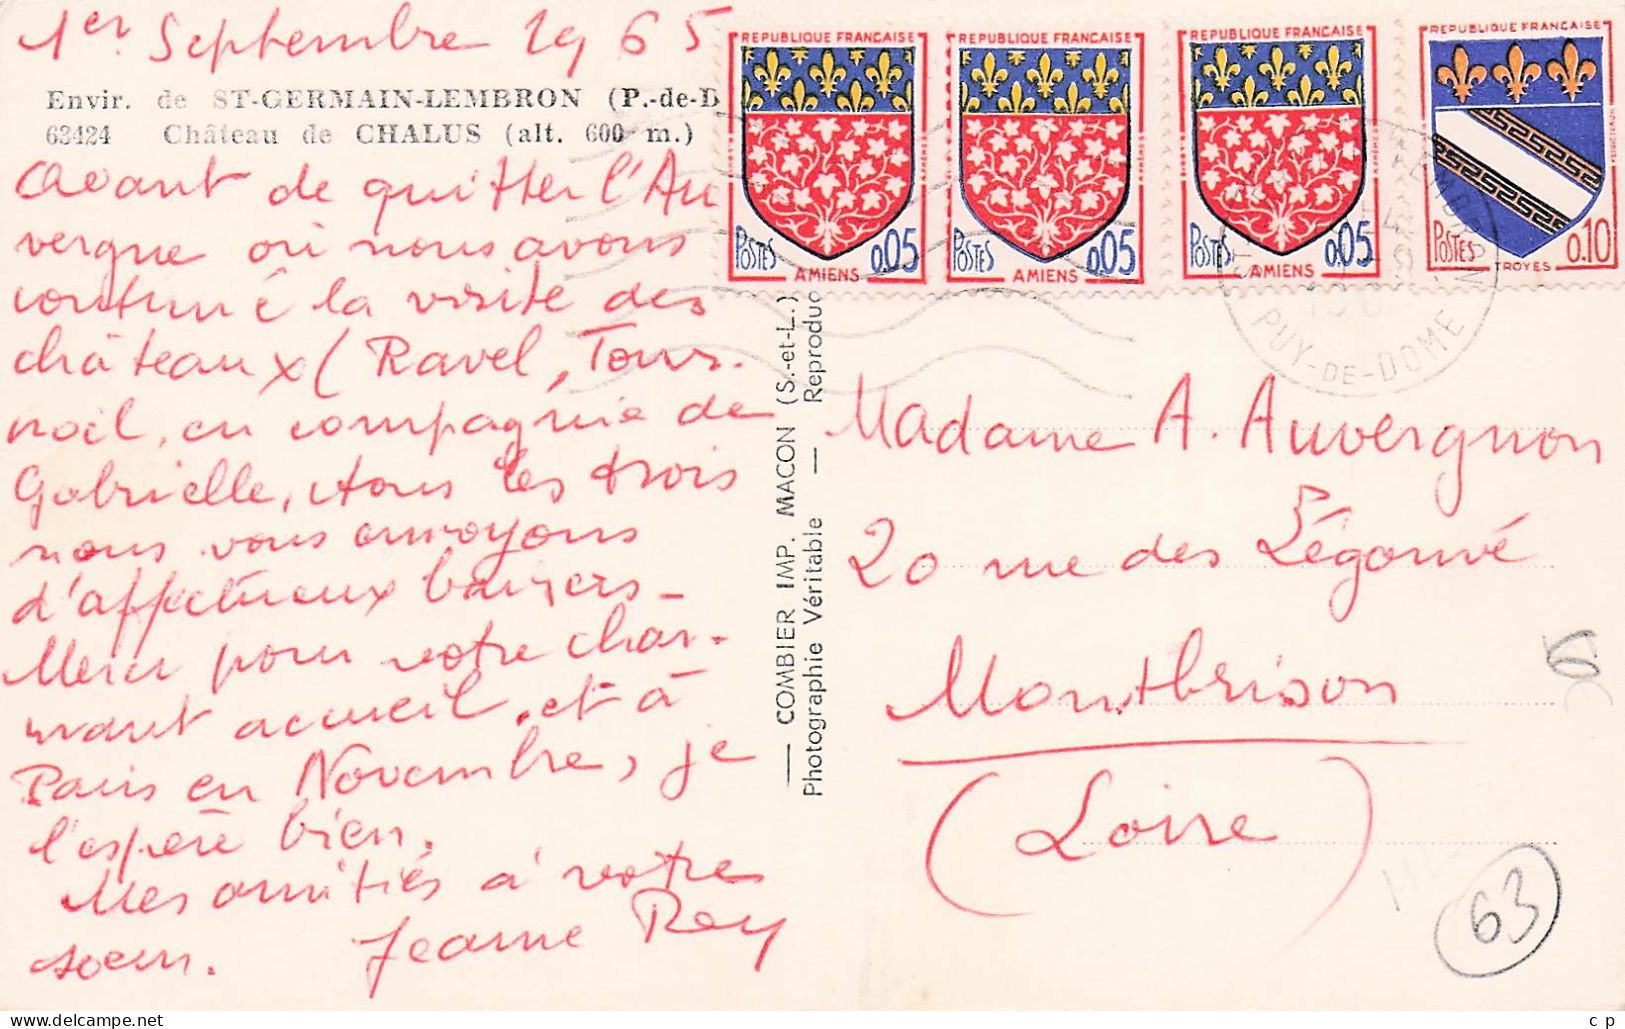 1er Septembre 1965
Envir. de ST-GERMAIN-LEMBRON (P.-de-D
63424 Château de CHALUS (alt. 600 m.)
Avant de quitter l'Au
vergne où nous avons
continué la visite des
châteaux (Ravel, Tour-
noël, en compagnie de
Gabrielle, tous les trois
nous vous envoyons
d'affectueux baisers-
Merci pour votre char-
mant accueil, et à
Paris en Novembre, je
l'espère bien.
Mes amitiés à votre
soeur. Jeanne Rey
— COMBIER IMP. MACON (S.-et-L.)
Photographie Véritable — Reproduc
REPUBLIQUE FRANÇAISE
POSTES 0.05
AMIENS
REPUBLIQUE FRANÇAISE
POSTES 0.05
AMIENS
REPUBLIQUE FRANÇAISE
POSTES 0.05
AMIENS
REPUBLIQUE FRANÇAISE
POSTES 0.10
TROYES
PUY-DE-DOME
Madame A. Auvergnon
20 rue des Légouvé
Montbrison
(Loire)
63
c p